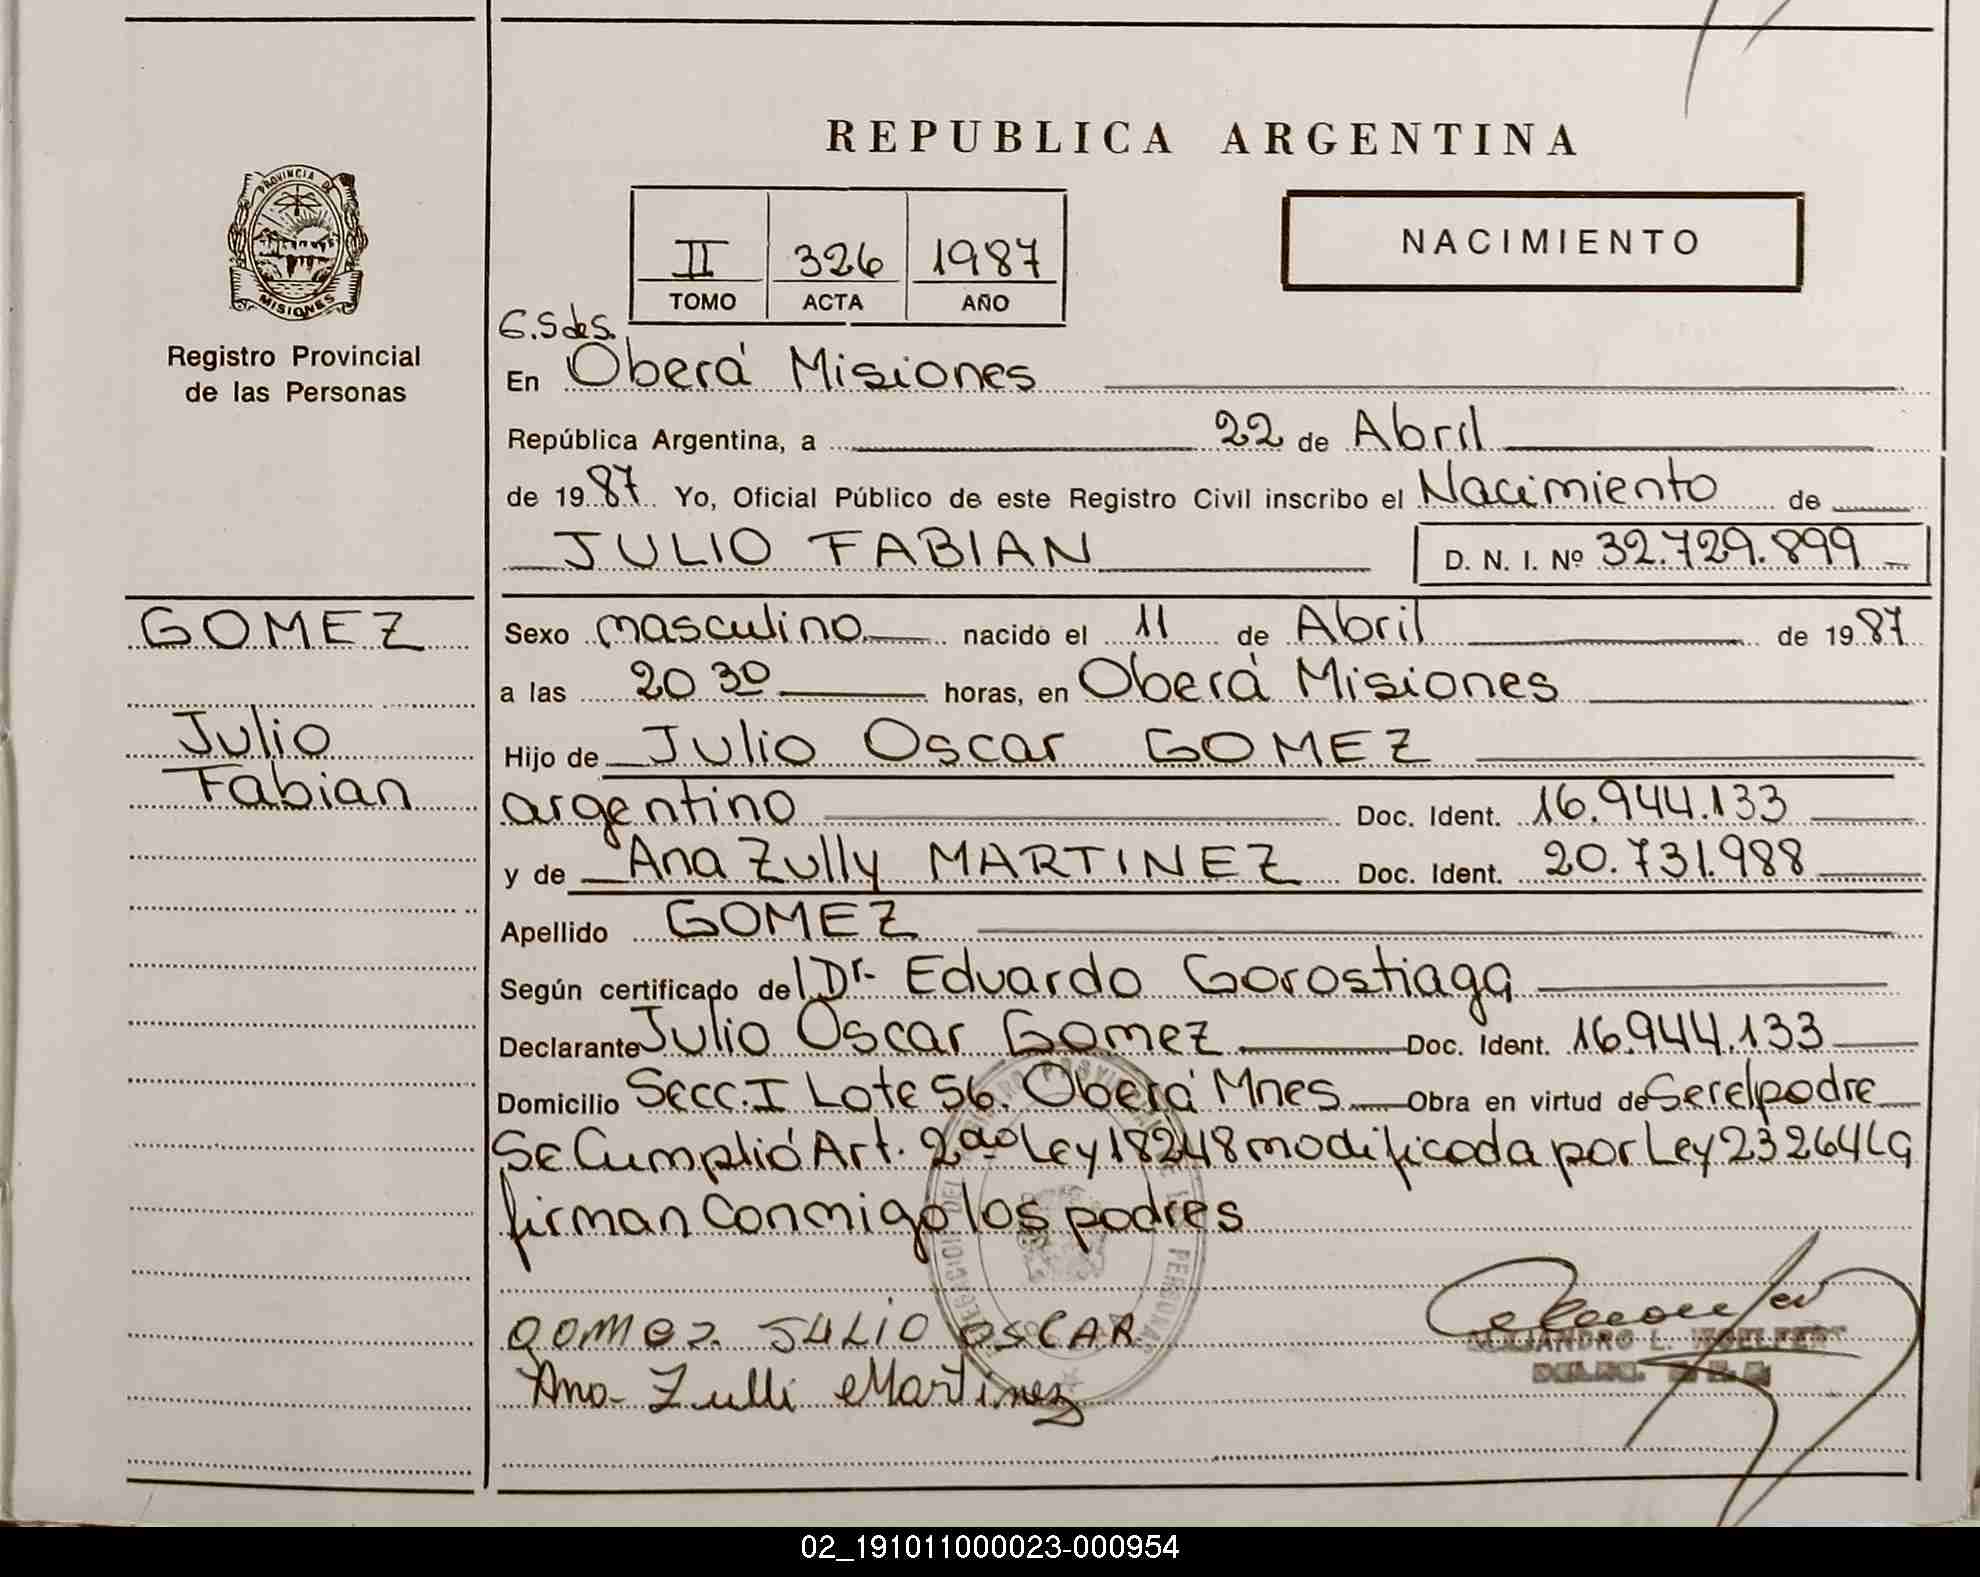 REPUBLICA ARGENTINA
PROVINCIA DE
MISIONES
Registro Provincial
de las Personas
II 326 1987
TOMO ACTA AÑO
NACIMIENTO
En Oberá Misiones
República Argentina, a 22 de Abril
de 1987 Yo, Oficial Público de este Registro Civil inscribo el Nacimiento de
JULIO FABIAN D. N. I. Nº 32.729.899
GOMEZ
Julio
Fabian
Sexo masculino nacido el 11 de Abril de 1987
a las 20 30 horas, en Oberá Misiones
Hijo de Julio Oscar GOMEZ
argentino Doc. Ident. 16.944.133
y de Ana Zully MARTINEZ Doc. Ident. 20.731.988
Apellido GOMEZ
Según certificado del Dr. Eduardo Gorostiaga
Declarante Julio Oscar Gomez Doc. Ident. 16.944.133
Domicilio Secc. I Lote 56. Oberá Mnes Obra en virtud de Ser el padre
Se Cumplió Art. 2do Ley 18248 modificada por Ley 23264
firman Conmigo los padres
GOMEZ JULIO OSCAR
Ana Zulli Martinez
ALEJANDRO L.
02_191011000023-000954